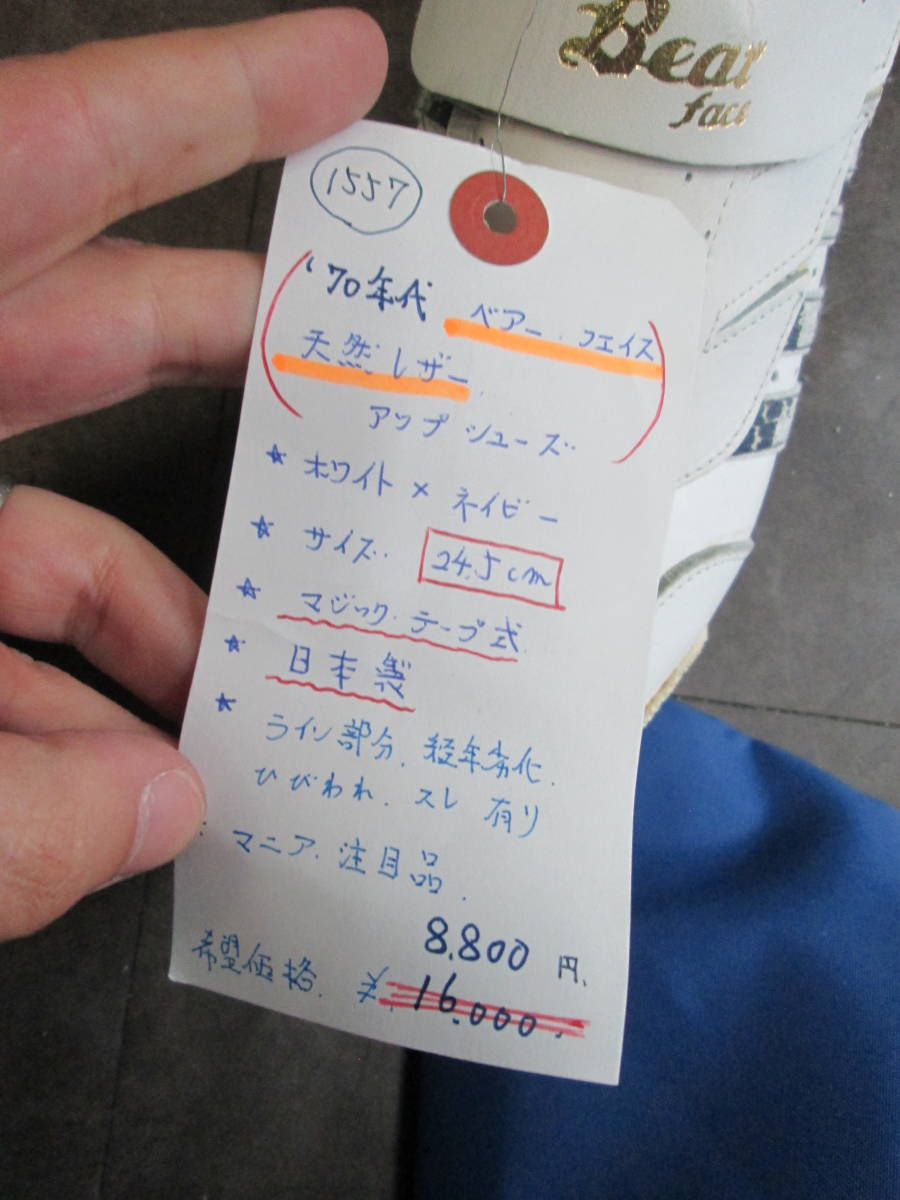 Bear
face
1557
'70年代 ベアー.フェイス
天然レザー.
アップシューズ
☆ ホワイト × ネイビー
☆ サイズ. 24.5cm
☆ マジック.テープ式
☆ 日本製
☆ ライン部分.経年劣化.
ひびわれ.スレ 有り
マニア.注目品.
8.800円.
希望価格. ¥16.000.